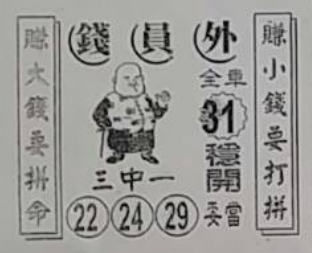 錢員外
賺小錢要打拼
全車
31
穩開
妥當
三中一
22 24 29
賺大錢要拼命